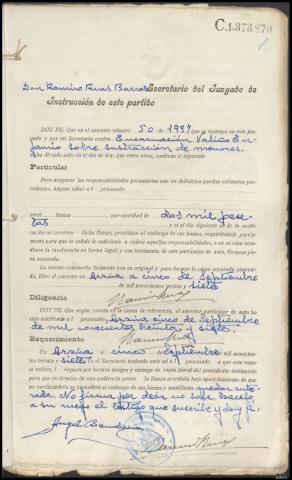 C.1.373.870
Don Ramiro Rivas Barros Secretario del Juzgado de
Instrucción de este partido
DOY FE: Que en el sumario número 50 de 1937 que se instruye en este juz-
gado y por mi Secretaría contra Encarnación Valiño En-
juanio sobre sustracción de menores.
ha dictado auto en el día de hoy, que entre otros, contiene el siguiente
Particular
Para asegurar las responsabilidades pecuniarias que en definitiva puedan estimarse pro-
cedentes, hágase saber a l proces
prest fianza por cantidad de dos mil pese-
tas y si el día siguiente al de la notifi-
cación no prestare dicha fianza, procédase al embargo de sus bienes, requiriéndole previa-
mente para que se señale lo suficiente a cubrir aquellas responsabilidades, o en su caso acredí-
tese la insolvencia en forma legal; y con testimonio de este particular de auto, fórmese pie-
za separada.
Lo inserto concuerda fielmente con su original y para formar la pieza separada preveni-
da, libro el presente en Arzúa a cinco de Septiembre
de mil novecientos treinta y siete
Diligencia
DOY FE: Que según consta en la causa de referencia, el anterior particular de auto ha
sido notificado a l procesad Arzúa cinco de Septiembre
de mil novecientos treinta y siete.
Requerimiento
En Arzúa a cinco Septiembre mil novecien-
tos treinta y siete El Secretario teniendo ante mí a l procesad a que este ramo
se refiere, l requerí por lectura íntegra y entrega de copia literal del precedente testimonio
para que en término de una audiencia preste la fianza acordada bajo apercibimiento de que
no verificándolo se procederá al embargo de sus bienes y manifiesta quedar ente-
rada. No firma por decir no sabe hacelo
a su ruego el testigo que suscribe y doy fe,
Angel